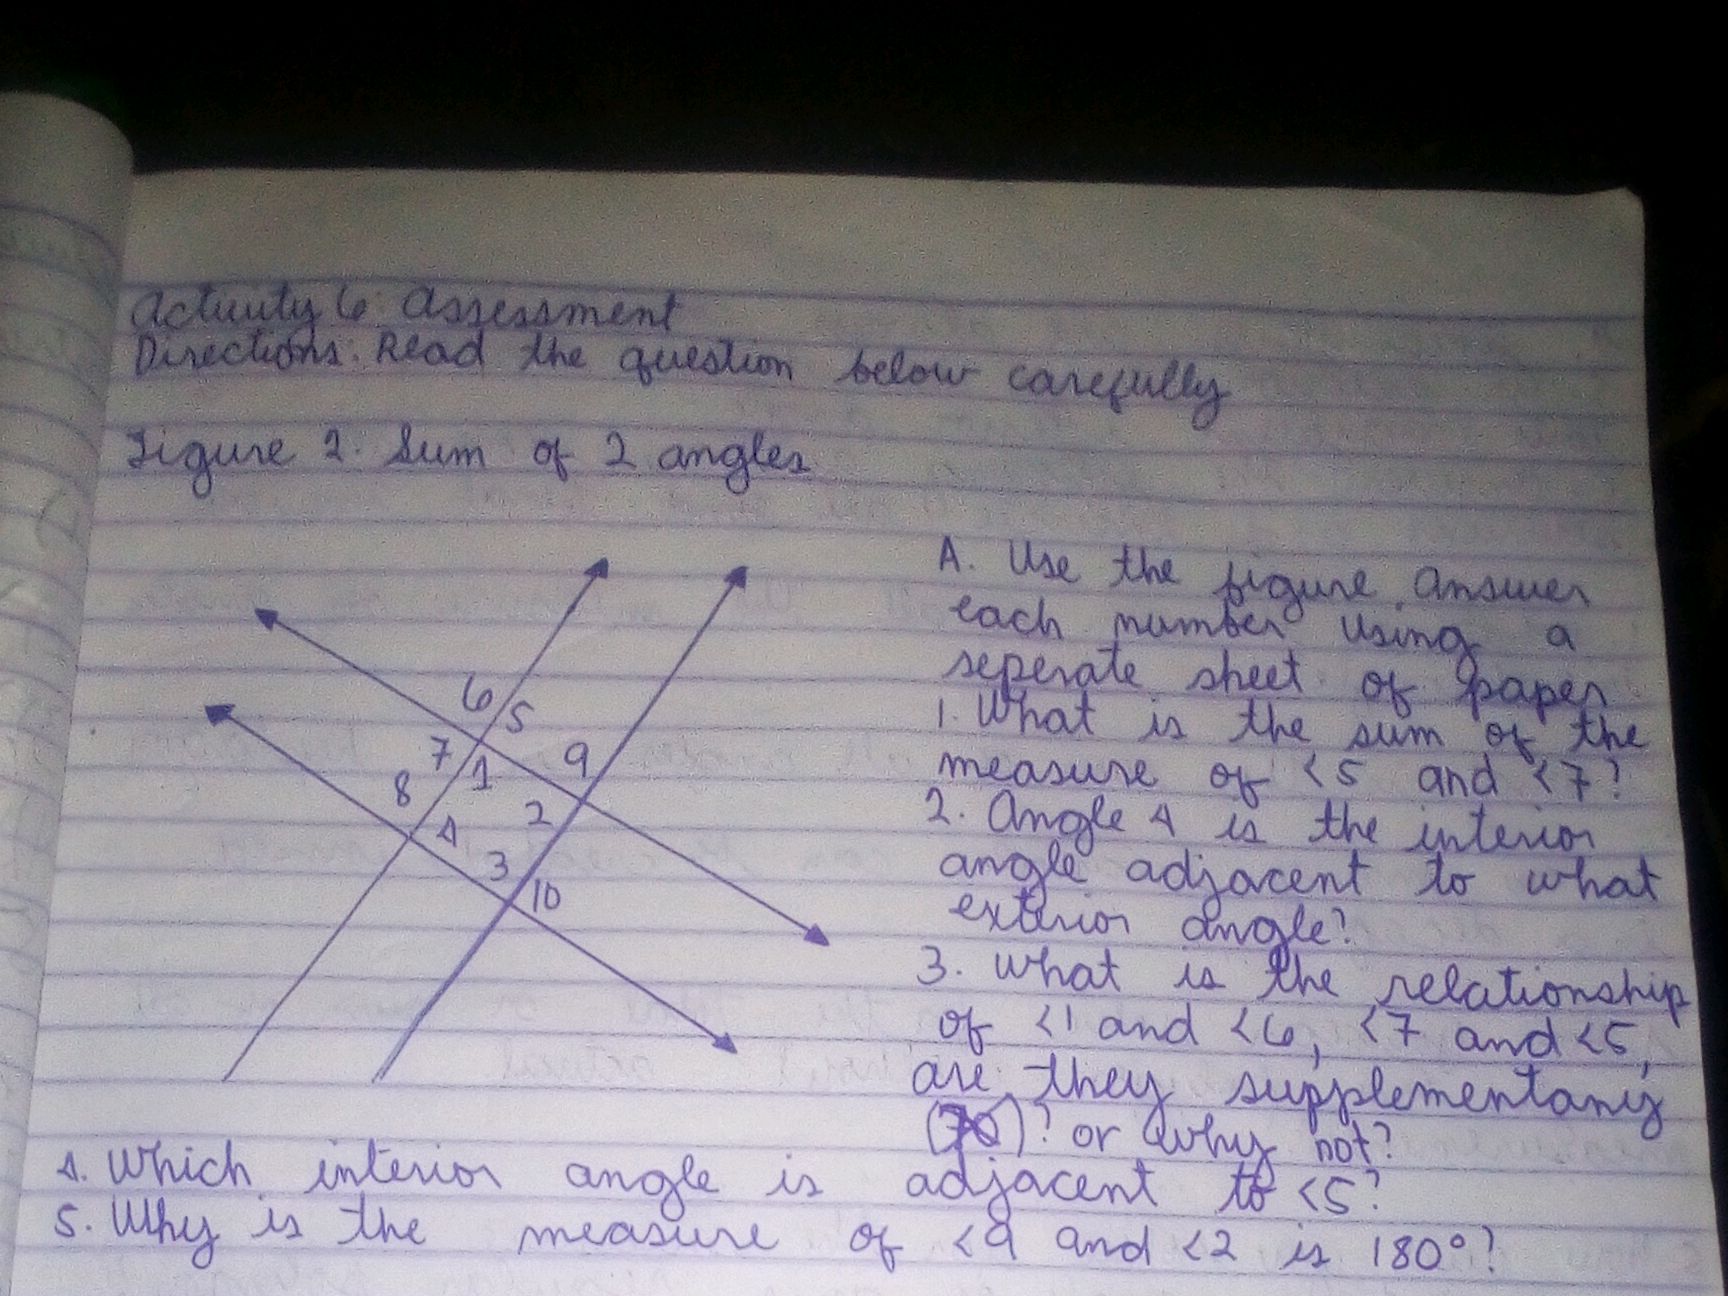 Activity 6: Assessment
Directions: Read the question below carefully
Figure 2. Sum of 2 angles
6
5
7
1
9
8
4
2
3
10
A. Use the figure. Answer
each number using a
seperate sheet of paper.
1. What is the sum of the
measure of <5 and <7?
2. Angle 4 is the interior
angle adjacent to what
exterior angle?
3. What is the relationship
of <1 and <6, <7 and <5,
are they supplementary
? or why not?
4. Which interior angle is adjacent to <5?
5. Why is the measure of <9 and <2 is 180°?